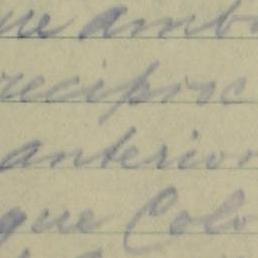 ue amb
reciproc
anterior
que Colo